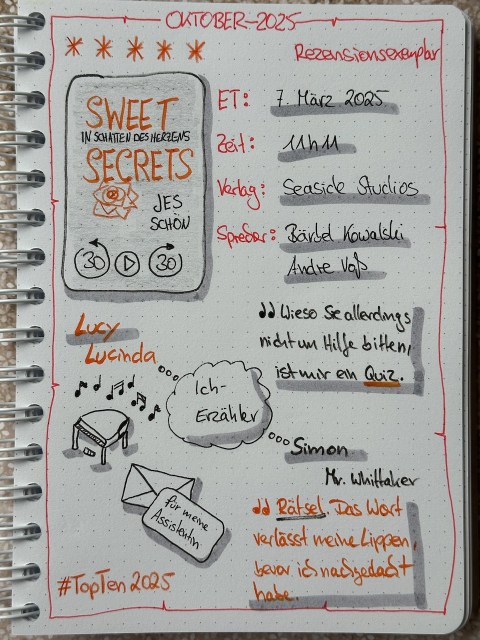 OKTOBER 2025
Rezensionsexemplar
SWEET
IN SCHATTEN DES HERZENS
SECRETS
JES
SCHÖN
30
30
ET: 7. März 2025
Zeit: 11h11
Verlag: Seaside Studios
Sprecher: Bärbel Kowalski
Andre Voß
Lucy
Lucinda
Ich-
Erzähler
Wieso Sie allerdings
nicht um Hilfe bitten,
ist mir ein Quiz.
Simon
Mr. Whittaker
für meine
Assistentin
Rätsel. Das Wort
verlässt meine Lippen,
bevor ich nachgedacht
habe.
#TopTen2025